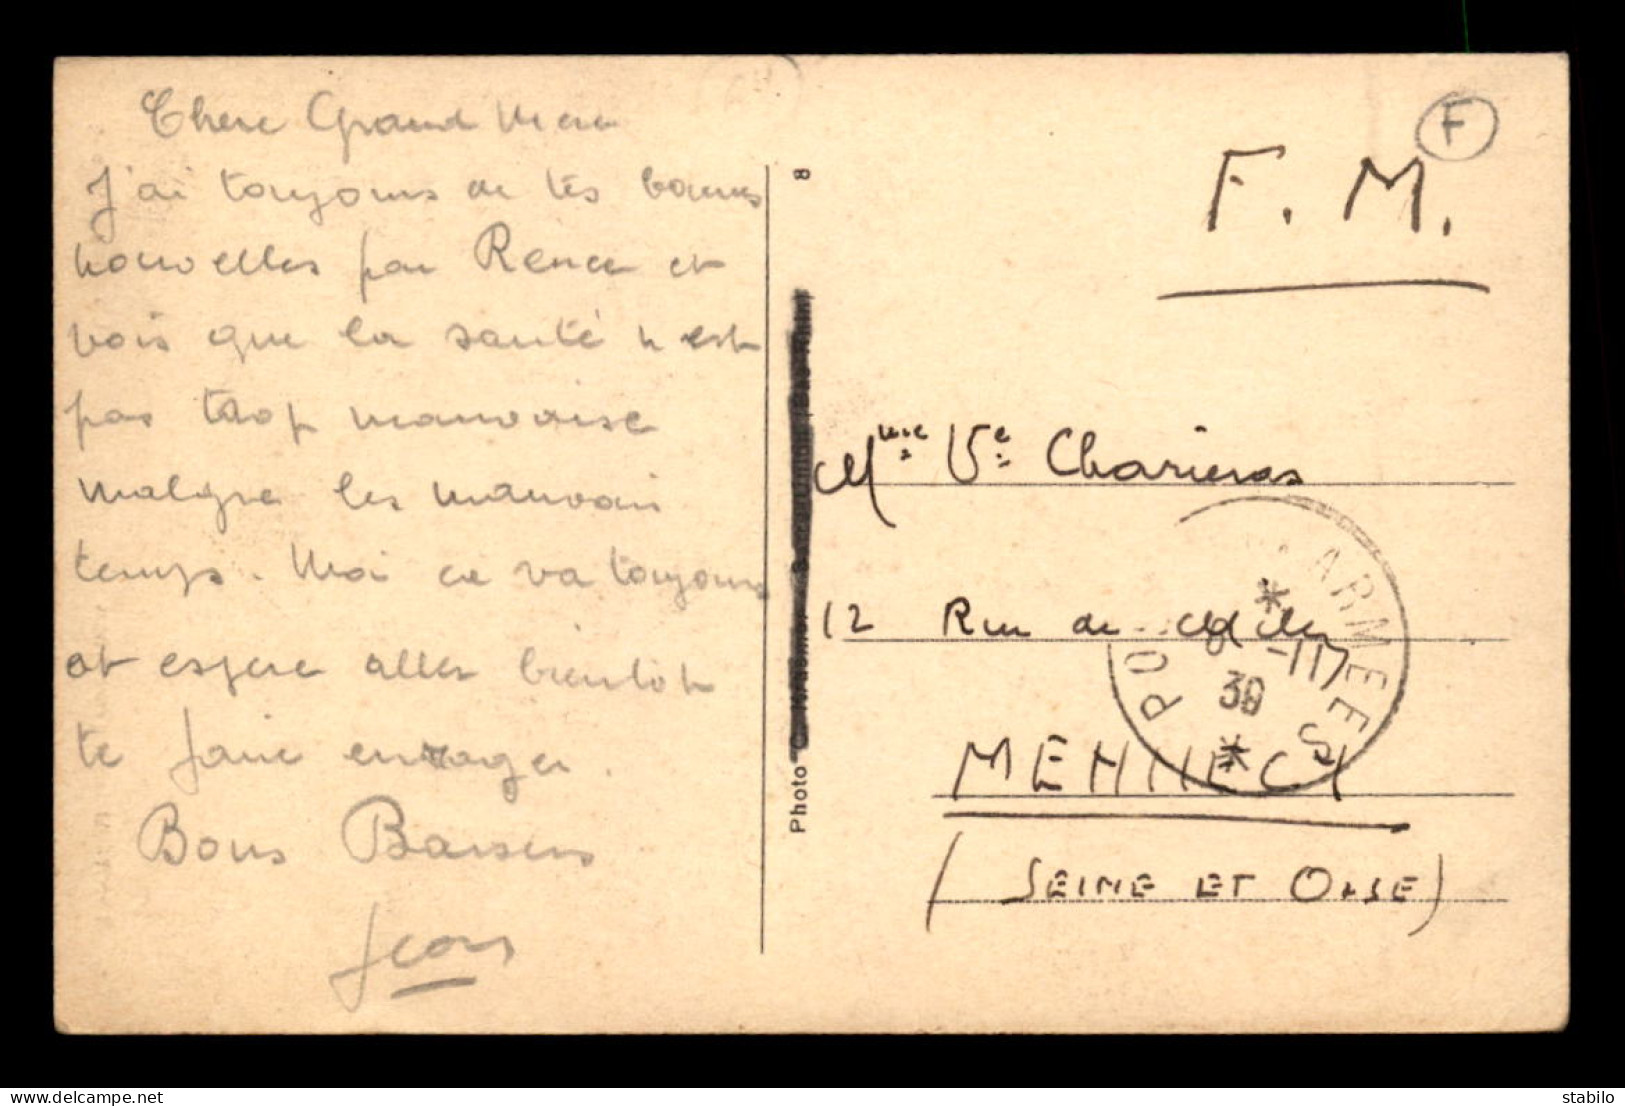 Chere Grand Mere
J'ai toujours de tes bonnes
nouvelles par Renee et
vois que la santé n'est
pas trop mauvaise
malgre les mauvais
temps. Moi ca va toujours
et espere aller bientot
te faire enrager.
Bons Baisers
Jean
8
Photo
F
F. M.
Mme Ve Charieras
12 Rue de
MENNECY
(SEINE ET OISE)
ARMEES
38
delcampe.net
stabilo